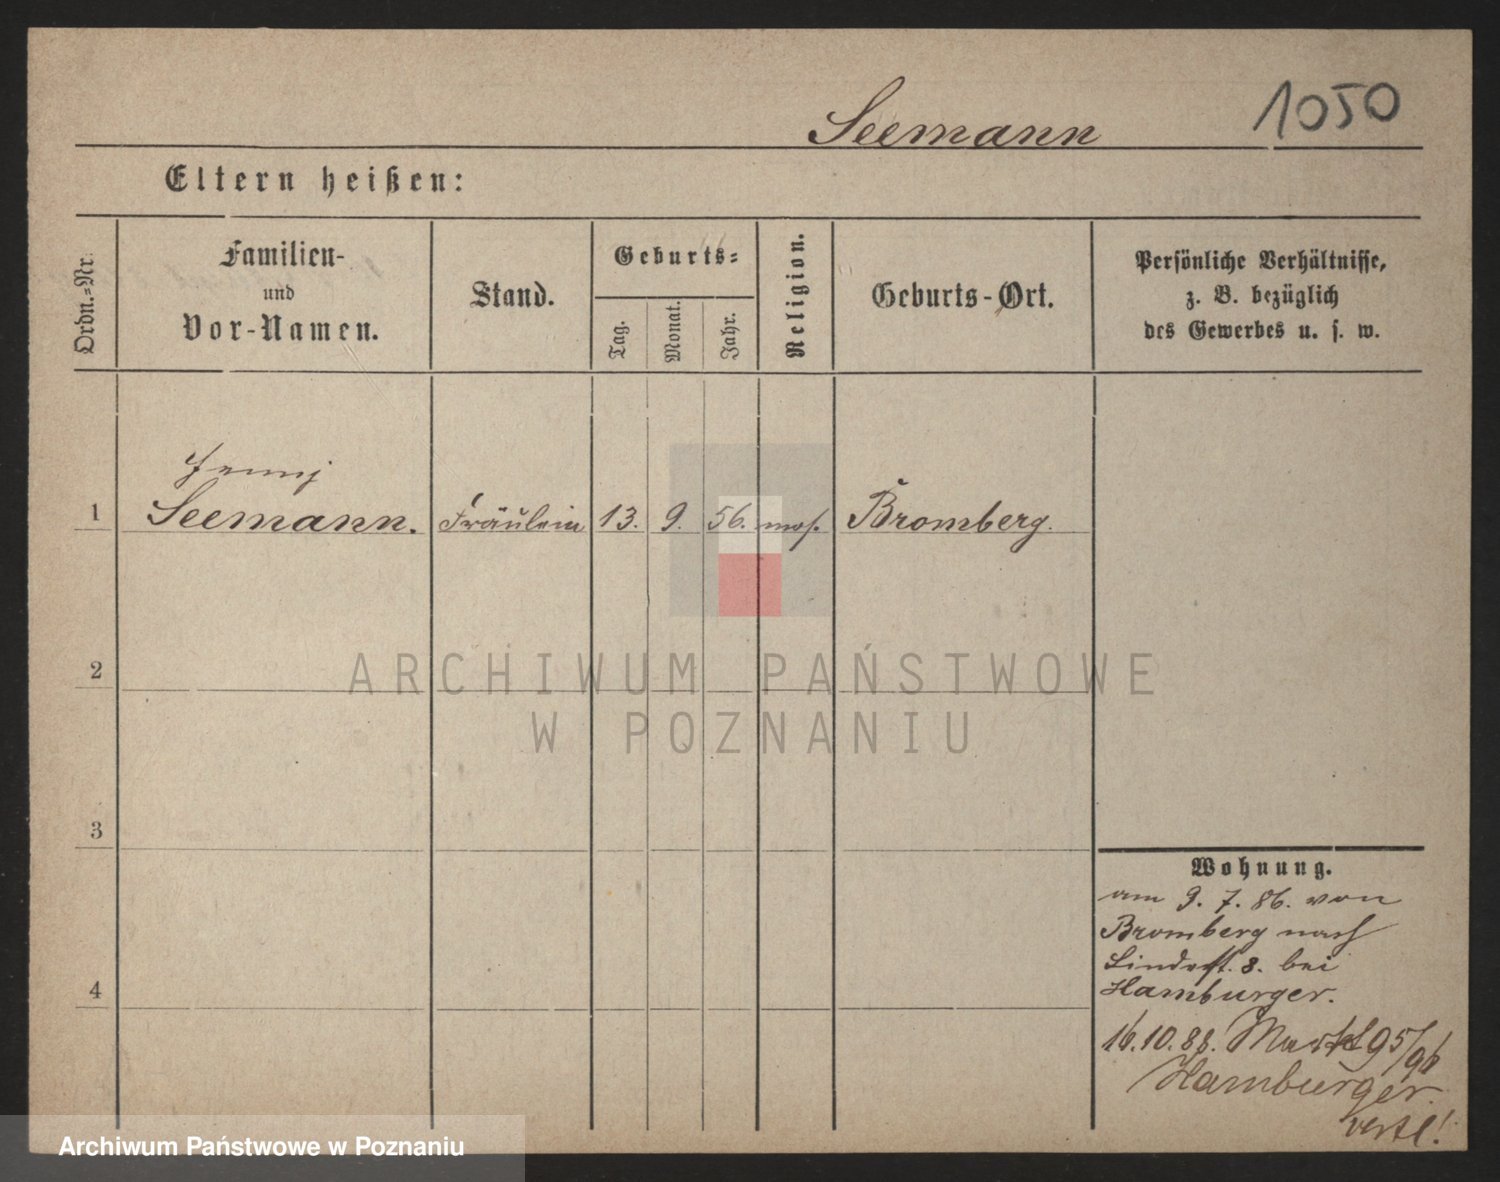 Seemann 1050
Eltern heißen:
Ordn.-Nr.
Familien-
und
Vor-Namen.
Stand.
Geburts-
Tag.
Monat.
Jahr.
Religion.
Geburts-Ort.
Persönliche Verhältnisse,
z. B. bezüglich
des Gewerbes u. s. w.
Jenny
1 Seemann. Fräulein 13. 9. 56. mos. Bromberg.
2
ARCHIWUM PAŃSTWOWE
W POZNANIU
3
Wohnung.
am 9. 7. 86. von
Bromberg nach
Lindestr. 8. bei
Hamburger.
4
16.10.88. Markt 95/96
Hamburger.
Archiwum Państwowe w Poznaniu